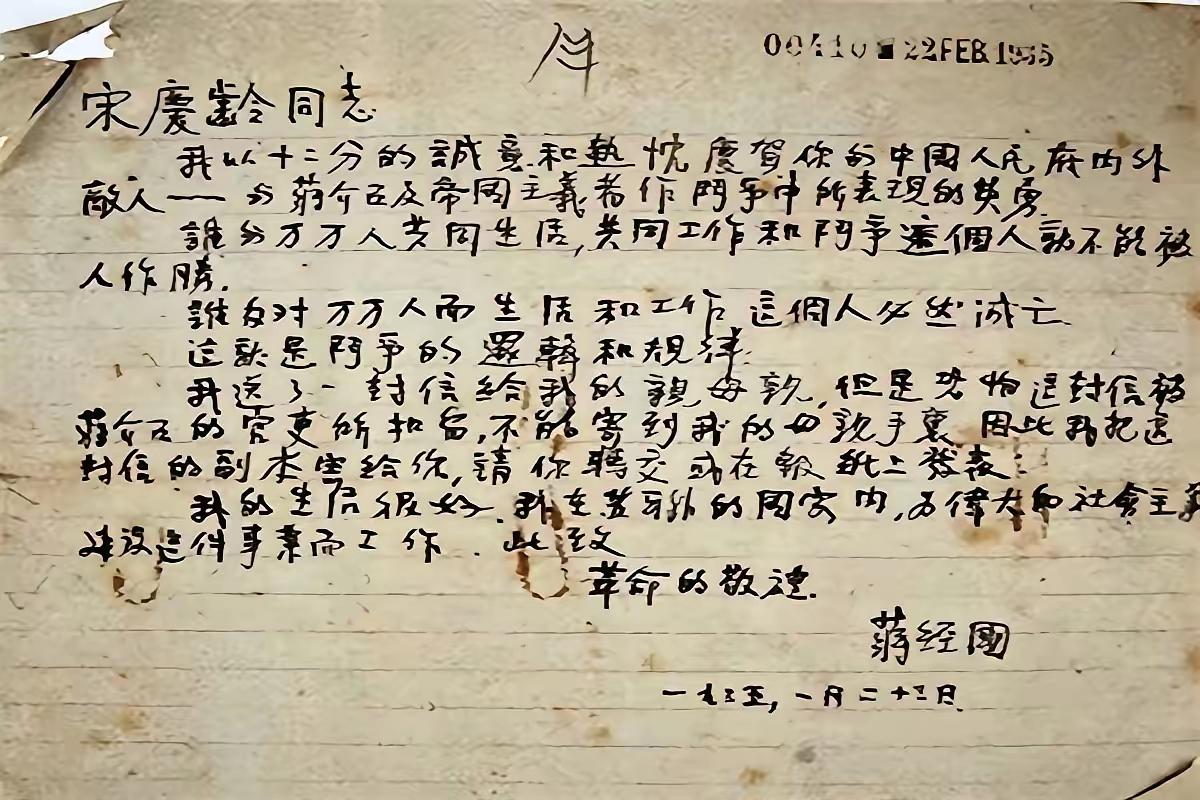 00410 22 FEB 1935
宋慶齡同志
我以十二分的誠意和熱忱慶賀你与中國人民底内外
敵人——与蔣介石及帝国主義者作鬥爭中所表現的英勇.
誰与万万人共同生活,共同工作和鬥爭這個人就不能被
人作勝.
誰反对万万人而生活和工作這個人必然滅亡.
這就是鬥爭的邏輯和規律.
我送了一封信給我的親母親,但是恐怕這封信被
蔣介石的官吏所扣留,不能寄到我的母親手裏.因此我把這
封信的副本寄給你,請你轉交或在報紙上發表.
我的生活很好.我在苏联的国家内,为偉大的社会主義
建設這件事業而工作.此致
革命的敬礼.
蔣经國
一九三五,一月二十三日.